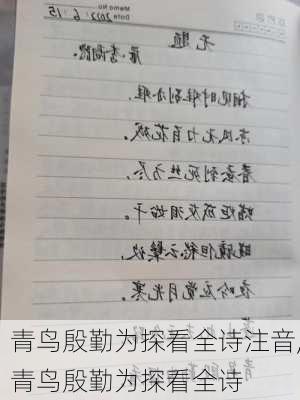 Memo No.
Date 2022.6.15
无题
唐·李商隐
相见时难别亦难,
东风无力百花残。
春蚕到死丝方尽,
蜡炬成灰泪始干。
晓镜但愁云鬓改,
夜吟应觉月光寒。
青鸟殷勤为探看全诗注音,
青鸟殷勤为探看全诗